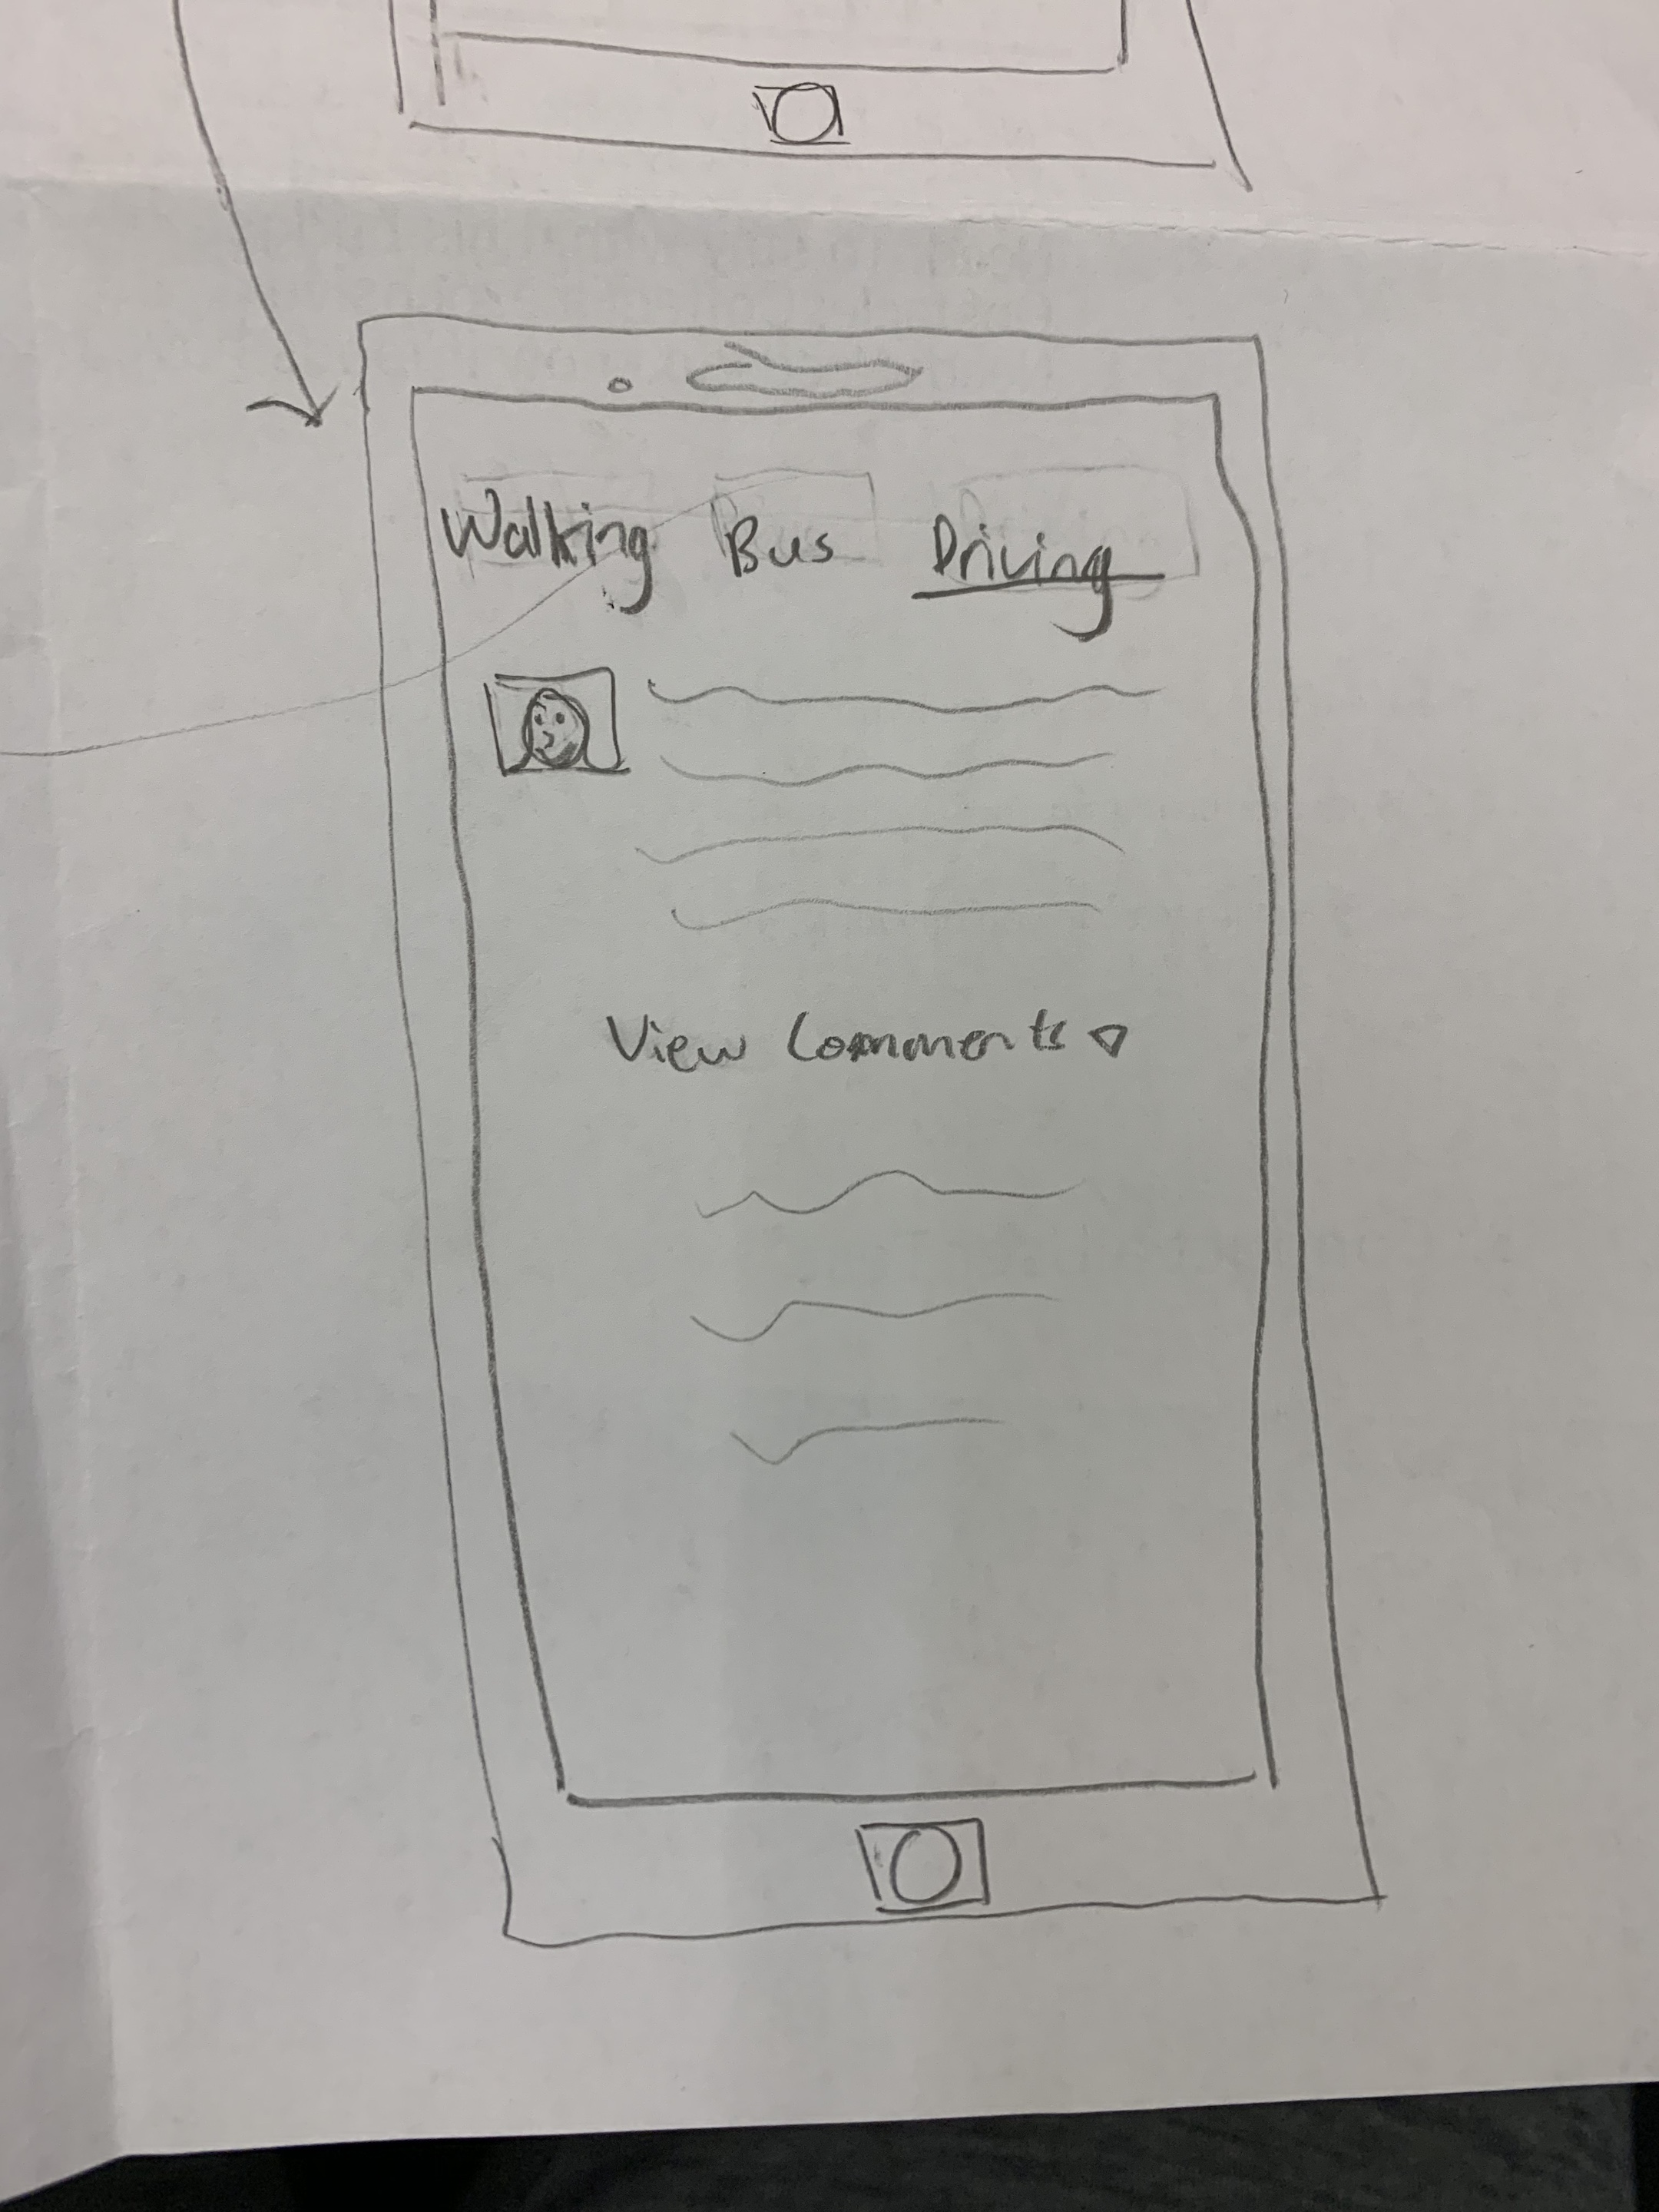 Walking Bus Driving
View Comments